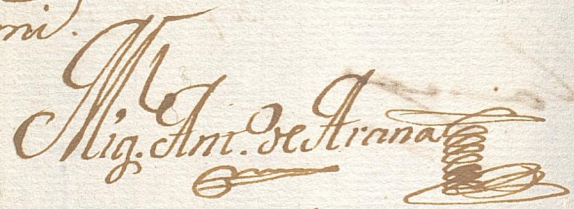 mi.
Mig. Ant.º de Arana